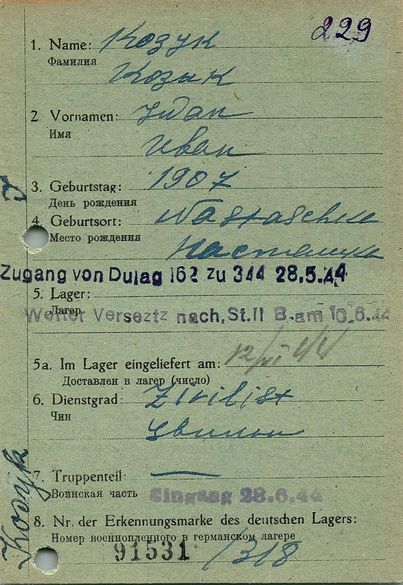 229
1. Name: Козук
Фамилия
Козик
2 Vornamen: Iwan
Имя
Иван
3. Geburtstag: 1907
День рождения
4. Geburtsort: Nastaschka
Место рождения
Zugang von Dulag 162 zu 344 28.5.44
5. Lager:
Лагерь
Weiter Versetz nach, St. II B am 10.6.44
5a. Im Lager eingeliefert am: 12/VI 44
Доставлен в лагерь (число)
6. Dienstgrad: Zivilist
Чин
Цвилист
7. Truppenteil: —
Воинская часть Eingang 28.6.44
8. Nr. der Erkennungsmarke des deutschen Lagers:
Номер военнопленного в германском лагере
91531 /318
Kosyk